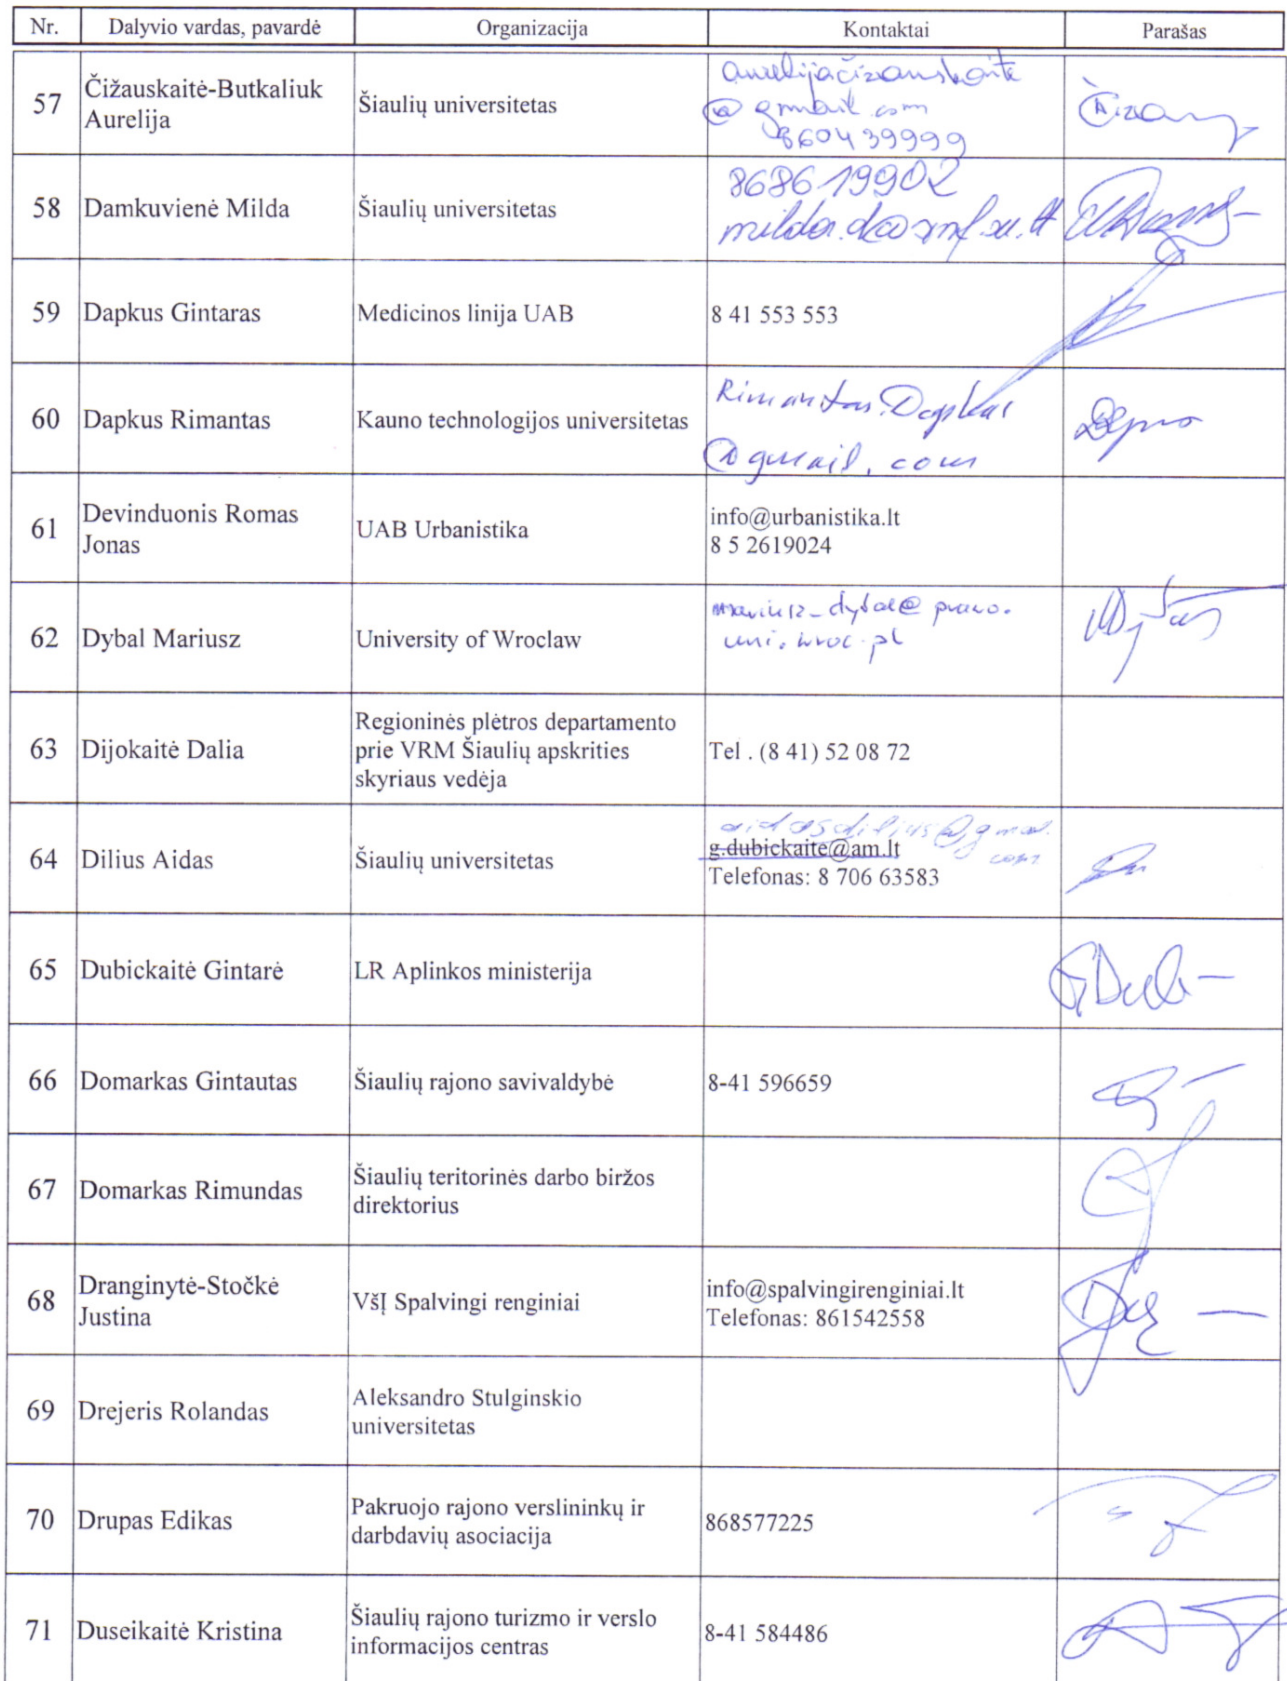 Nr. Dalyvio vardas, pavardė Organizacija Kontaktai Parašas
57 Čižauskaitė-Butkaliuk Aurelija Šiaulių universitetas aurelijačizauskaite
@gmail.com
860439999
58 Damkuvienė Milda Šiaulių universitetas 868619902
milda.d@smf.su.lt
59 Dapkus Gintaras Medicinos linija UAB 8 41 553 553
60 Dapkus Rimantas Kauno technologijos universitetas Rimantas.Dapkus
@gmail.com
61 Devinduonis Romas
Jonas
UAB Urbanistika
info@urbanistika.lt
8 5 2619024
62 Dybal Mariusz University of Wroclaw mariusz_dybal@prawo.
uni.wroc.pl
63 Dijokaitė Dalia
Regioninės plėtros departamento
prie VRM Šiaulių apskrities
skyriaus vedėja
Tel . (8 41) 52 08 72
64 Dilius Aidas Šiaulių universitetas
aidasdilius@gmail.
com
g.dubickaite@am.lt
Telefonas: 8 706 63583
65 Dubickaitė Gintarė LR Aplinkos ministerija
66 Domarkas Gintautas Šiaulių rajono savivaldybė 8-41 596659
67 Domarkas Rimundas
Šiaulių teritorinės darbo biržos
direktorius
68 Dranginytė-Stočkė
Justina
VšĮ Spalvingi renginiai
info@spalvingirenginiai.lt
Telefonas: 861542558
69 Drejeris Rolandas
Aleksandro Stulginskio
universitetas
70 Drupas Edikas
Pakruojo rajono verslininkų ir
darbdavių asociacija
868577225
71 Duseikaitė Kristina
Šiaulių rajono turizmo ir verslo
informacijos centras
8-41 584486